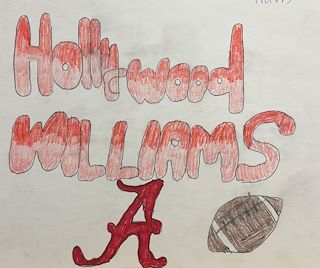 Hollywood
WILLIAMS
A